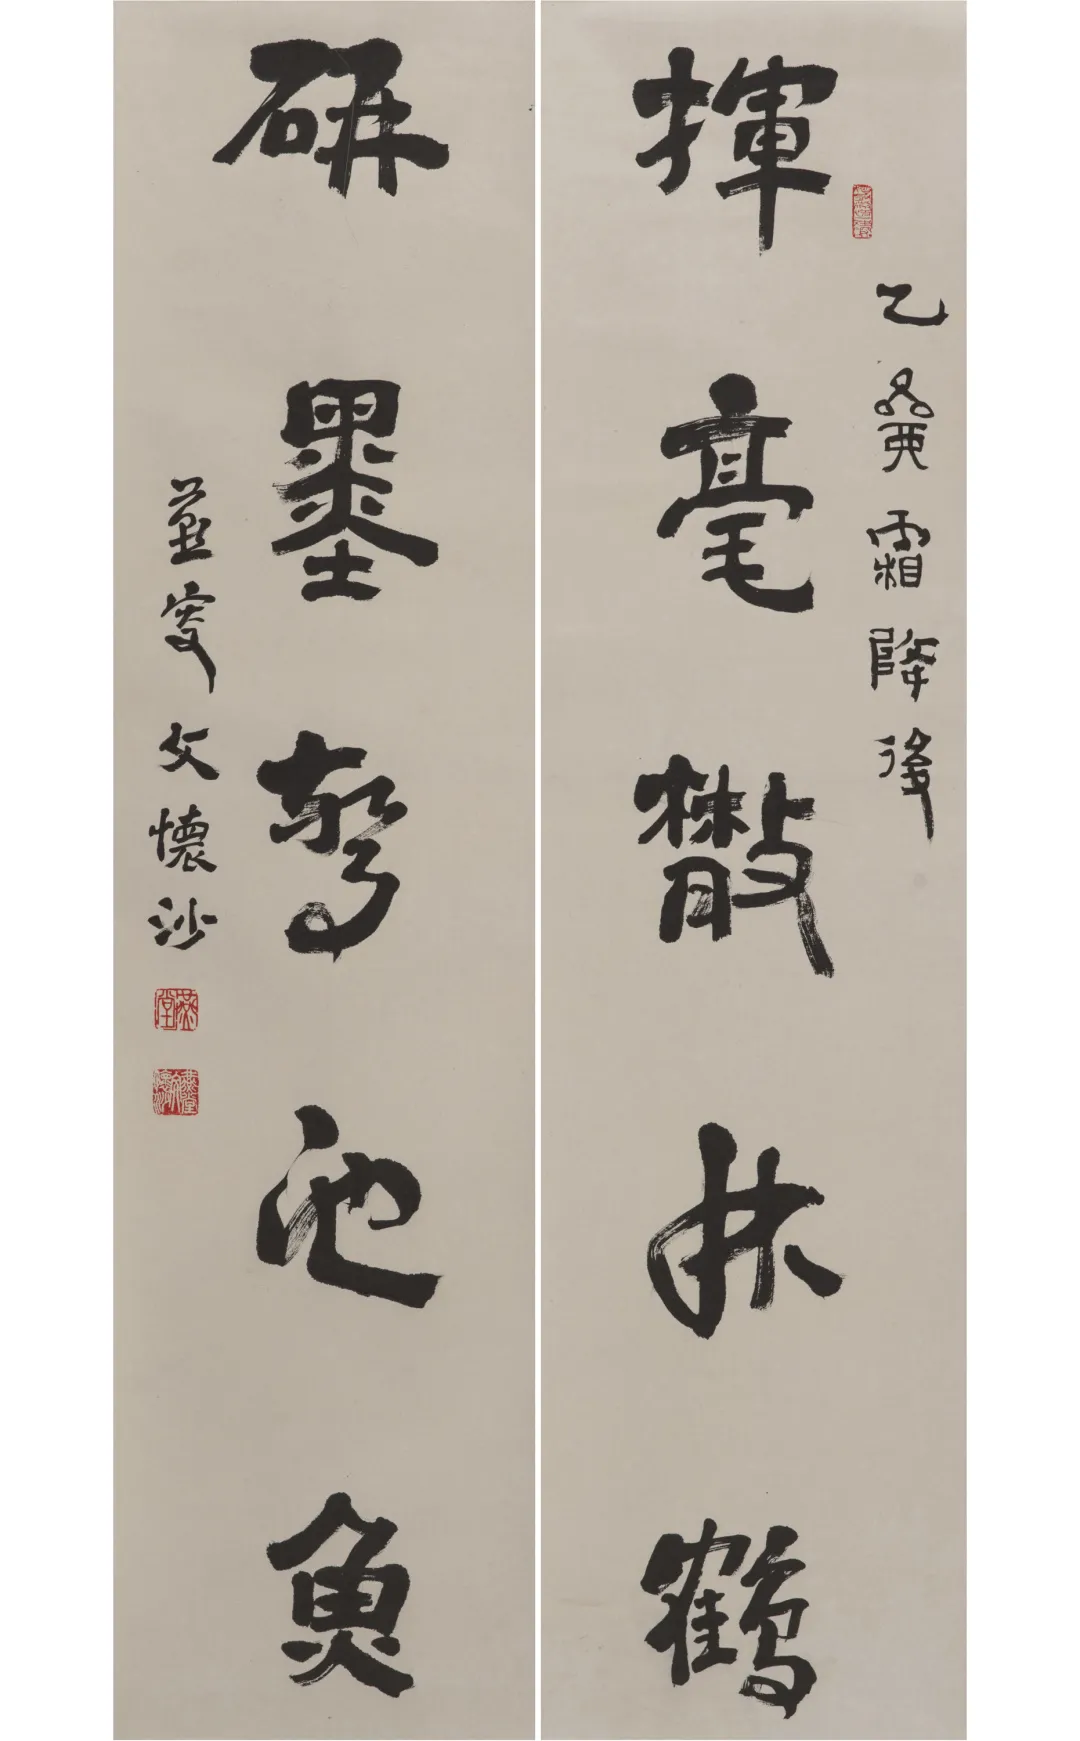 揮毫散林鶴
乙
霜降後
研墨驚池魚
燕叟文懷沙
燕堂